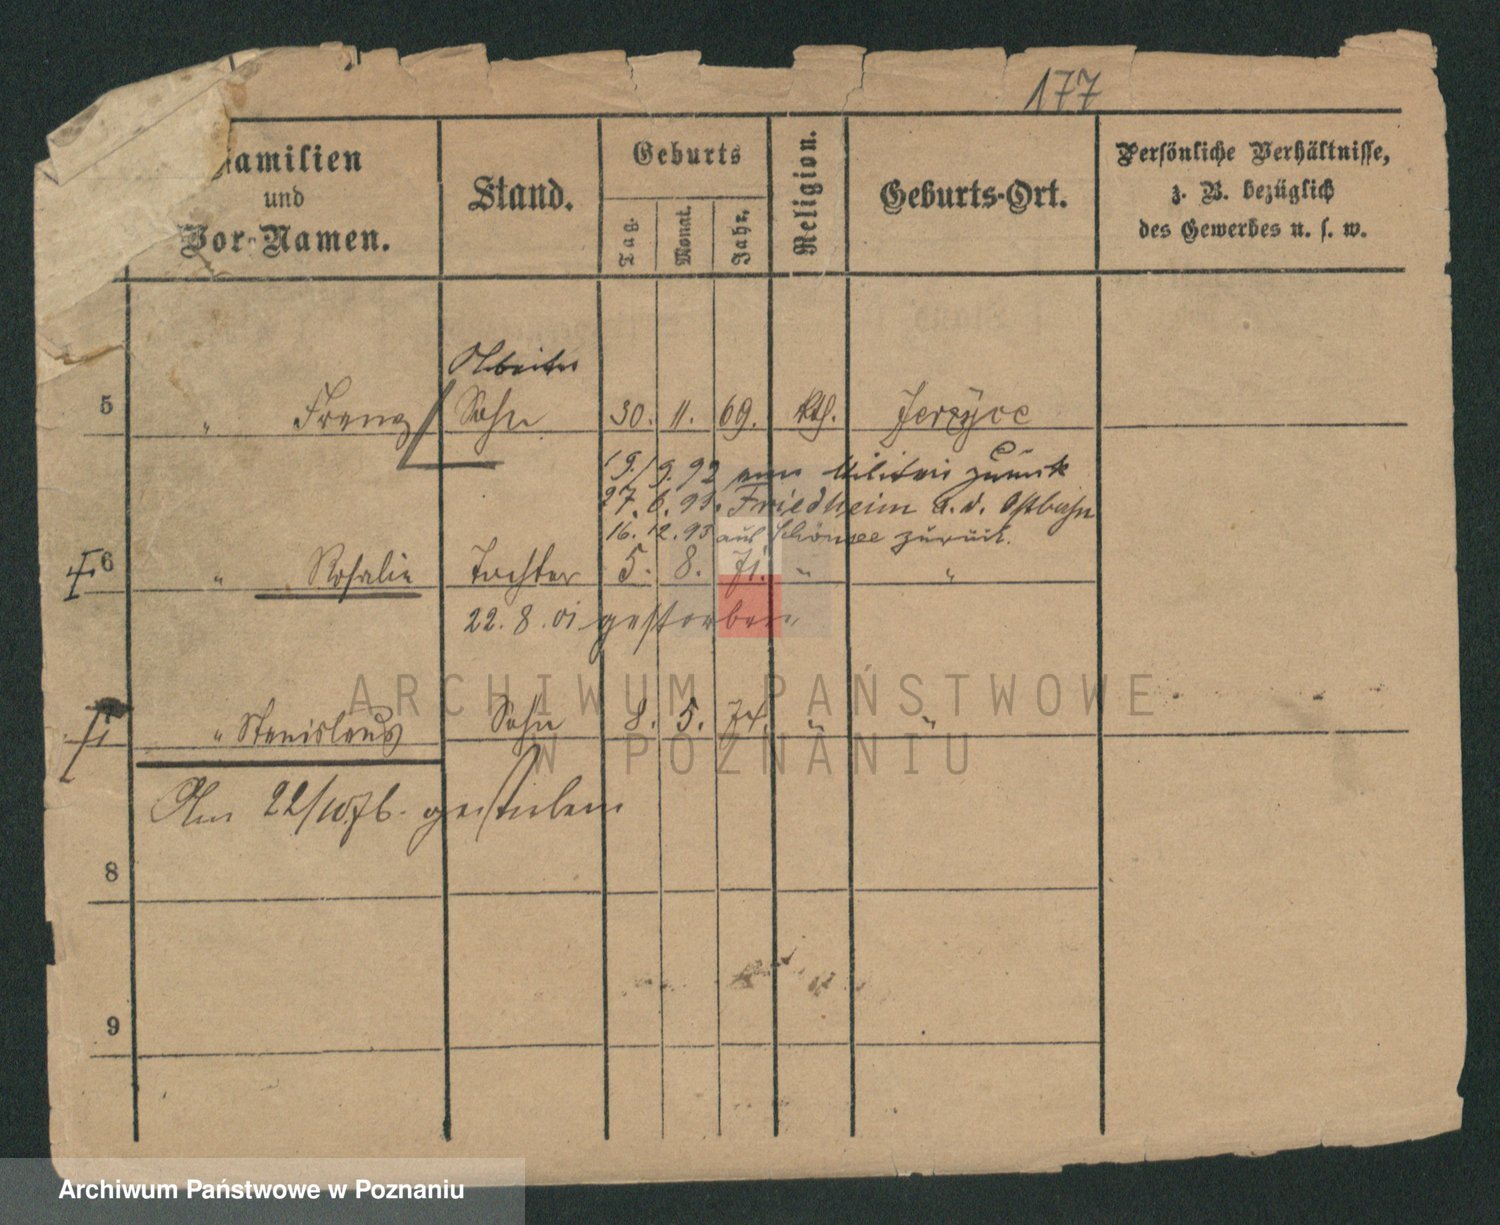 177
Familien
und
Vor-Namen.
Stand.
Geburts
Tag.
Monat.
Jahr.
Religion.
Geburts-Ort.
Persönliche Verhältnisse,
z. B. bezüglich
des Gewerbes u. s. w.
Arbeiter
5 " Franz Sohn 30. 11. 69. kth. Jerzyce
19./9. 92 vom Militair zurück
27. 6. 93. Friedheim a. d. Ostbahn
16. 12. 93 aus Schönsee zurück.
6 " Rosalie Tochter 5. 8. 71. " "
22. 8. 01 gestorben
" Stanislaus Sohn 8. 5. 74. " "
Am 22/10.76. gestorben
8
9
ARCHIWUM PAŃSTWOWE
W POZNANIU
Archiwum Państwowe w Poznaniu